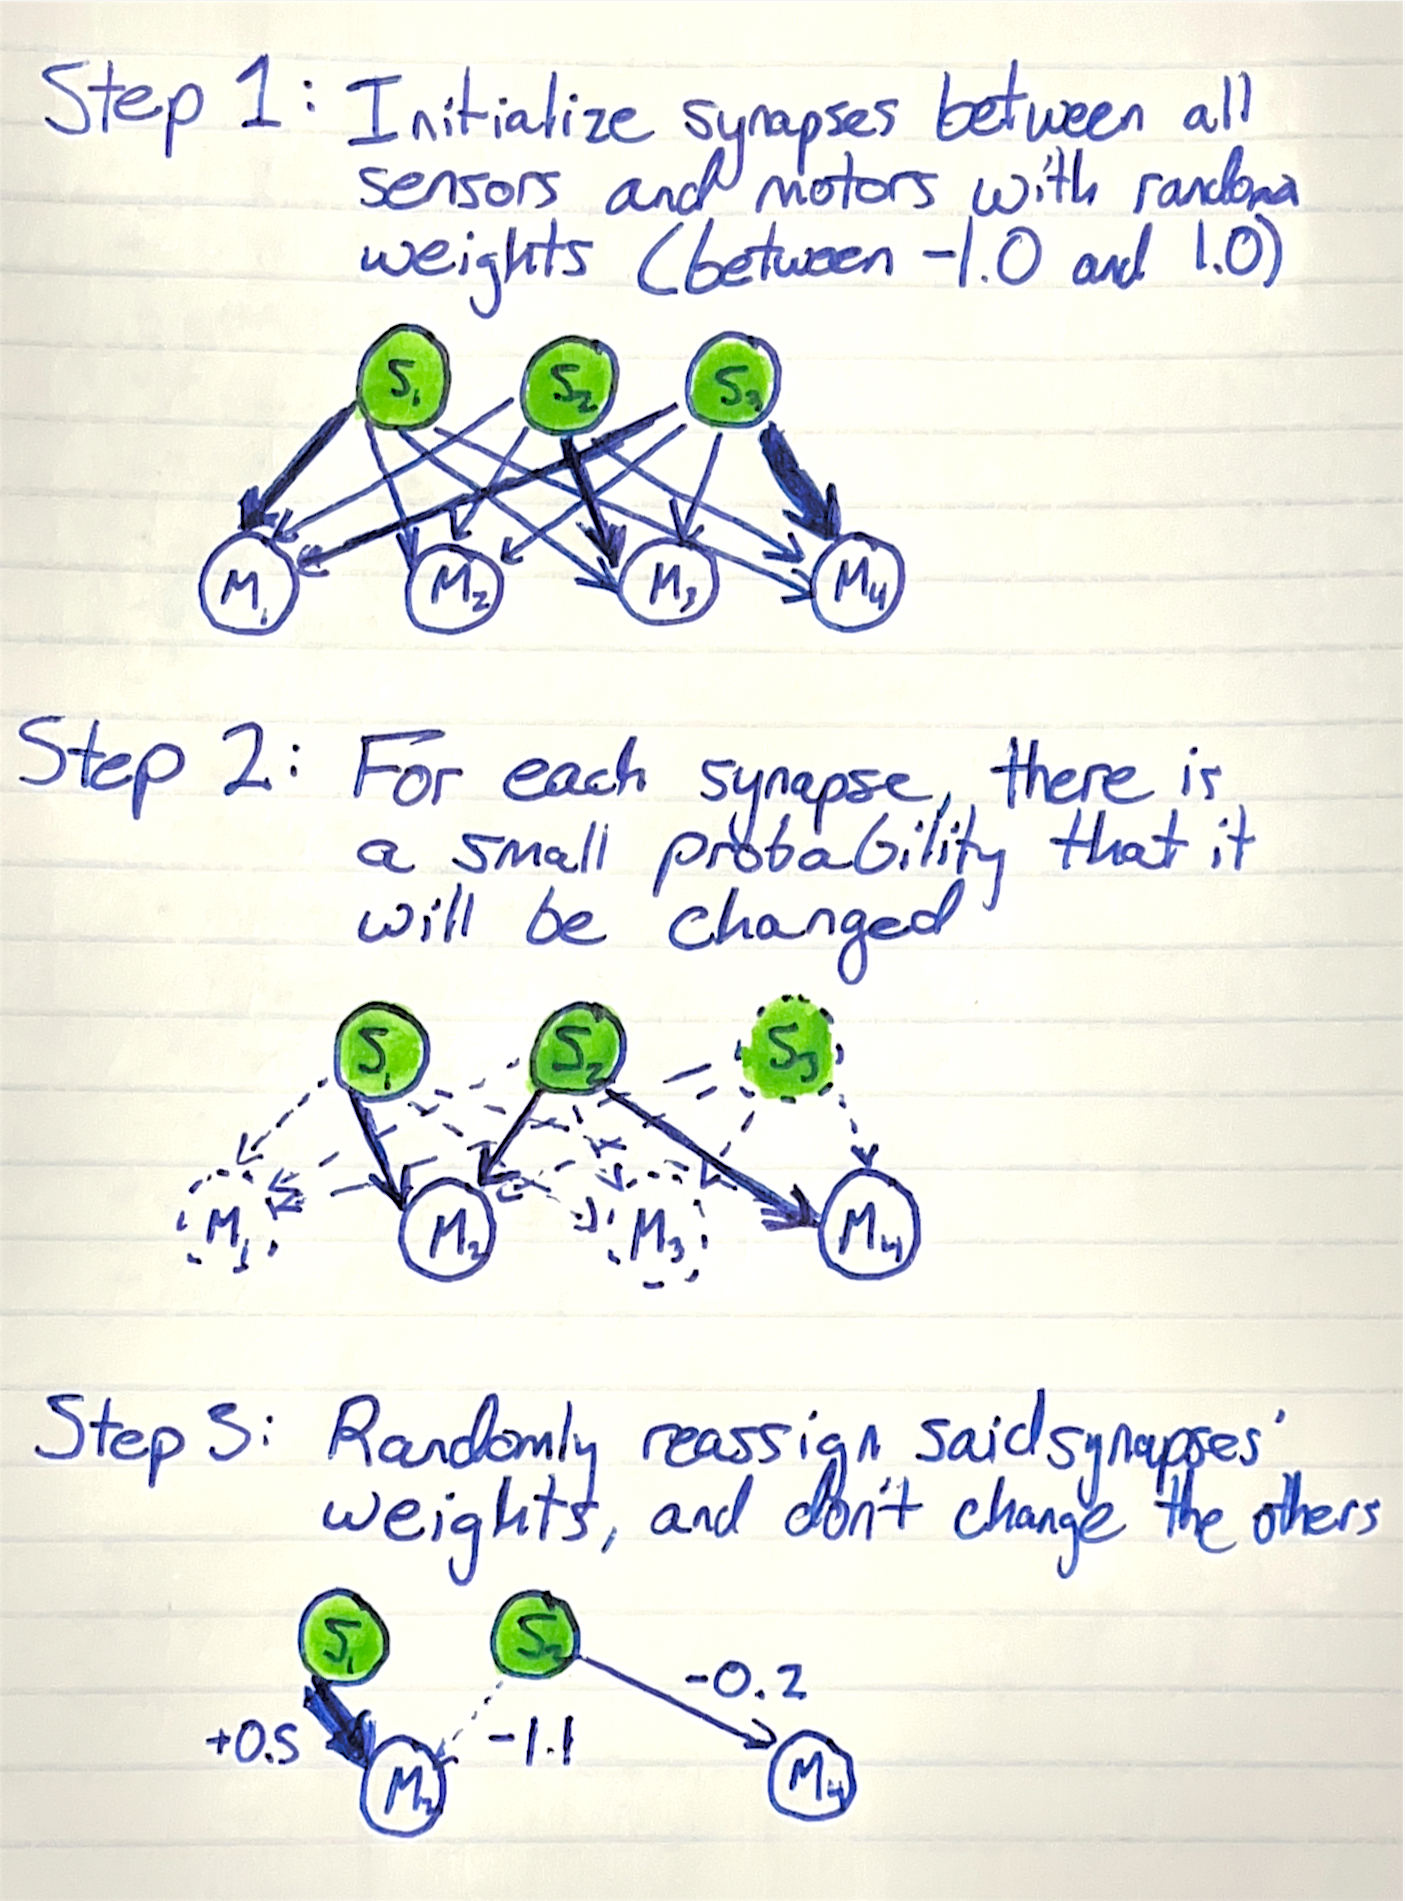 Step 1: Initialize synapses between all
sensors and motors with random
weights (between -1.0 and 1.0)
S1 S2 S3
M1 M2 M3 M4
Step 2: For each synapse, there is
a small probability that it
will be changed
S1 S2 S3
M1 M2 M3 M4
Step 3: Randomly reassign said synapses'
weights, and don't change the others
S1 S2
-0.2
+0.5 -1.1
M2 M4